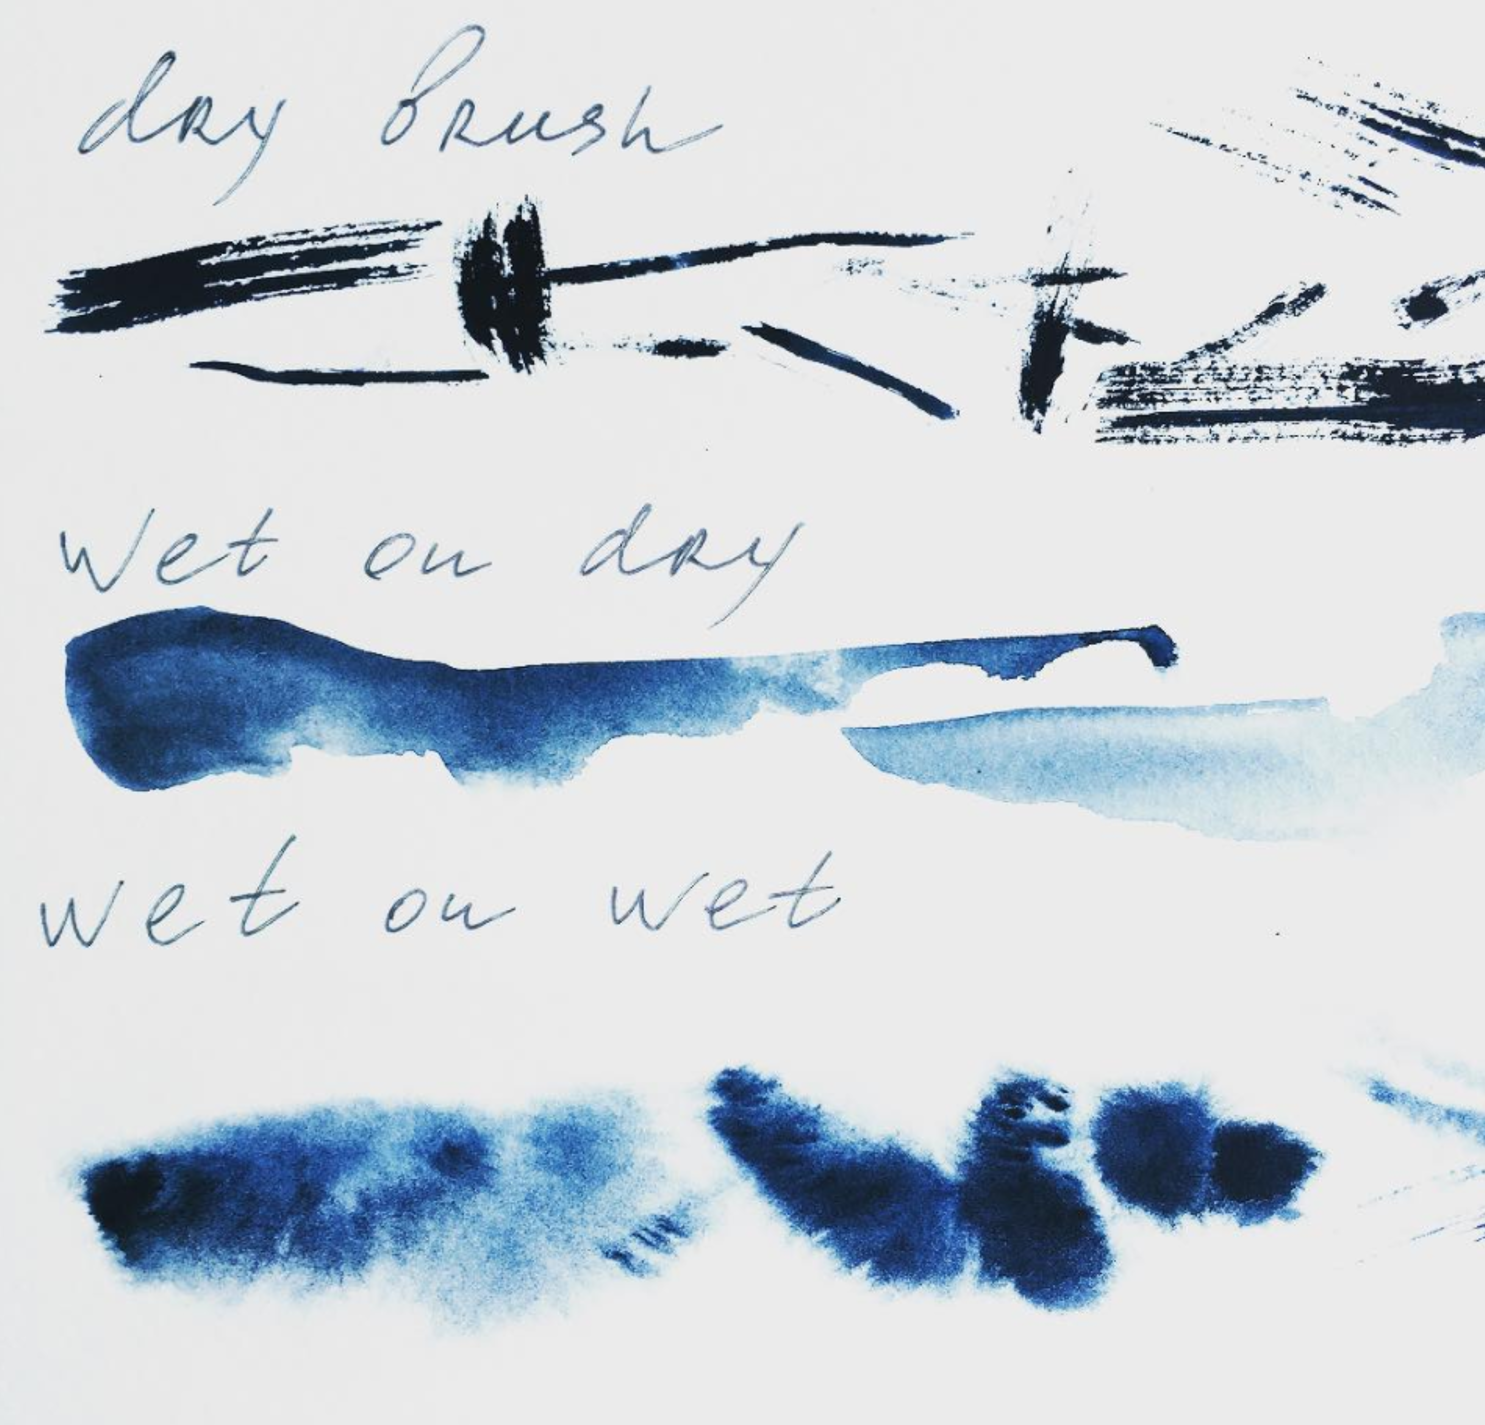 dry brush
wet on dry
wet on wet